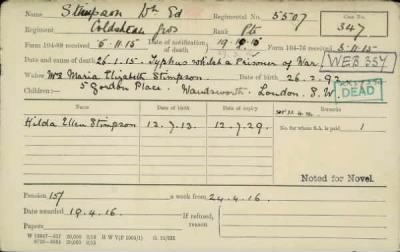 Name Stimpson Wm Ed Regimental No. 5507 Case No.
Regiment Coldstream Gds Rank Pte 347
Form 104-88 received 5-11-15 Date of notification of death 19.10.15 Form 104-76 received 5-11-15
Date and cause of death 26.1.15 - Typhus whilst a Prisoner of War. WEB 357
Widow Ws Maria Elizabeth Stimpson. Date of birth 26.2.92
Children:- 5 Gordon Place, Wandsworth, London. S.W. DEAD
Name Date of birth Date of expiry Remarks
Hilda Ellen Stimpson 12.7.13. 12.7.29. No. for whom S.A. is paid 1
Noted for Novel.
Pension 15/ a week from 24.4.16.
Date awarded 19.4.16. If refused, reason
Papers